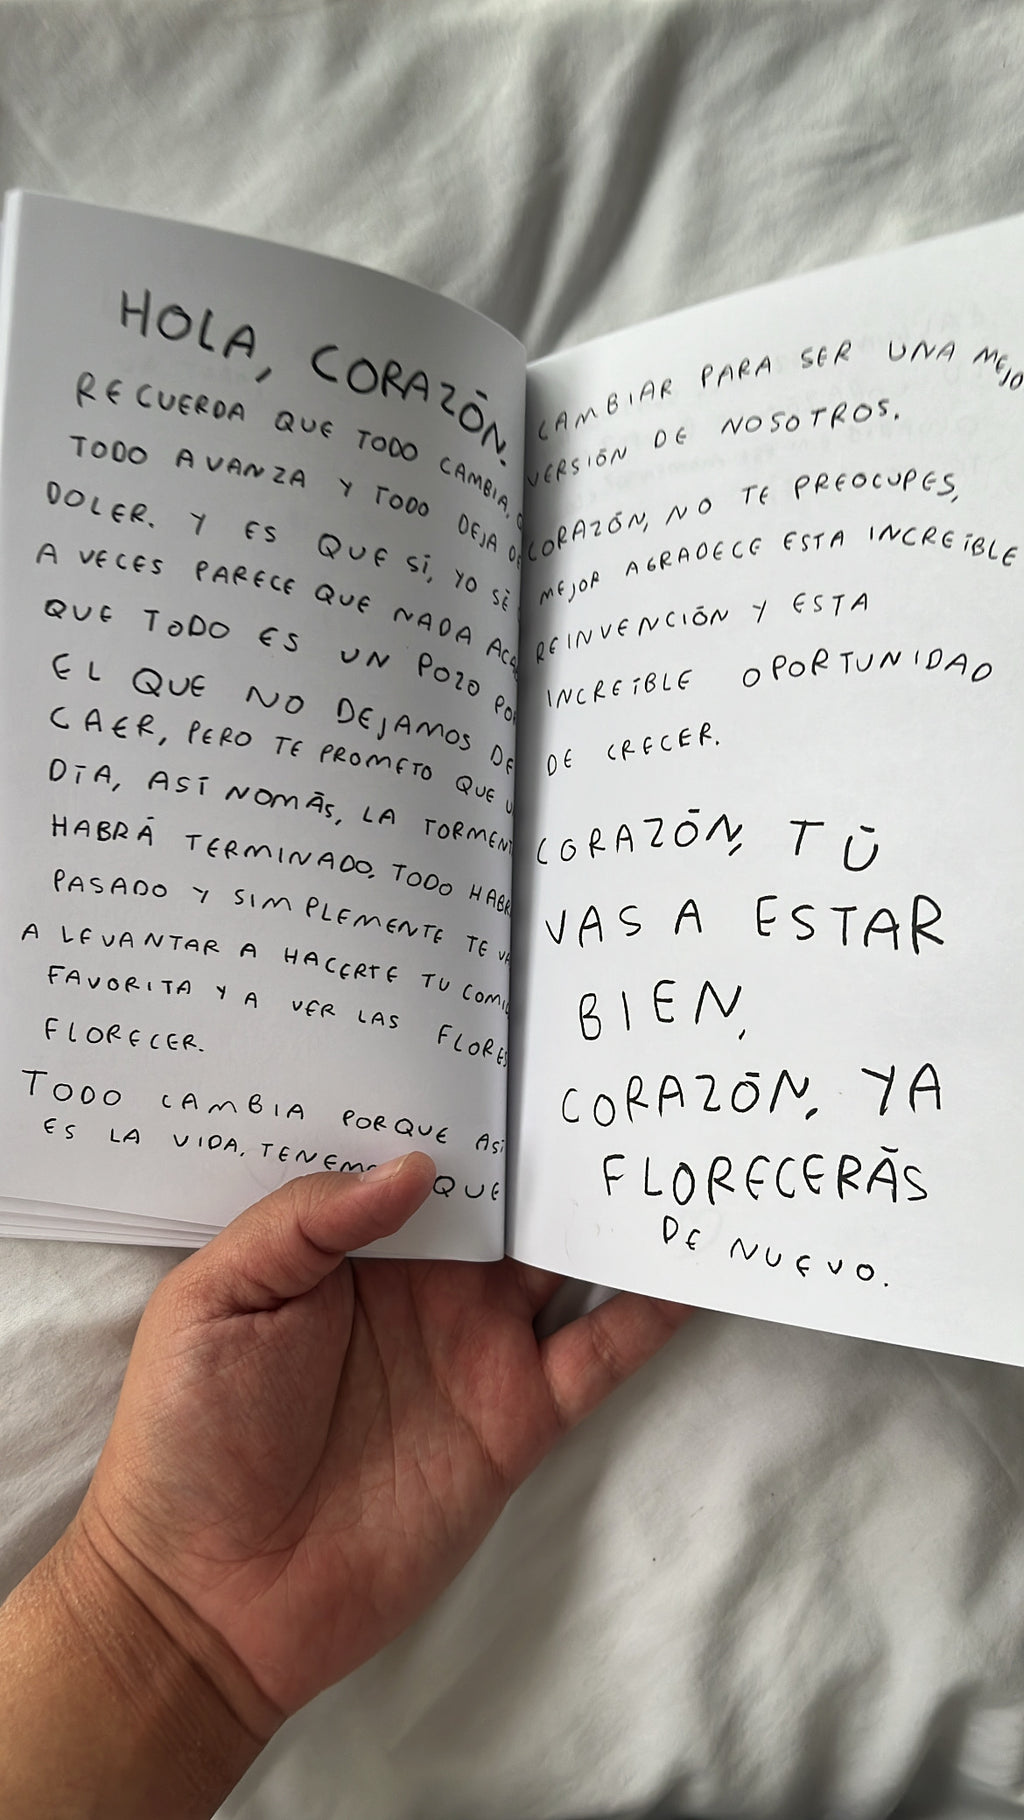 HOLA, CORAZÓN.
RECUERDA QUE TODO CAMBIA,
TODO AVANZA Y TODO DEJA DE
DOLER. Y ES QUE SÍ, YO SÉ
A VECES PARECE QUE NADA
QUE TODO ES UN POZO POR
EL QUE NO DEJAMOS DE
CAER, PERO TE PROMETO QUE
DÍA, ASÍ NOMÁS, LA TORMENT
HABRÁ TERMINADO, TODO HABR
PASADO Y SIMPLEMENTE TE VA
A LEVANTAR A HACERTE TU COMI
FAVORITA Y A VER LAS FLORES
FLORECER.
TODO CAMBIA PORQUE ASÍ
ES LA VIDA, TENEMO QUE
CAMBIAR PARA SER UNA MEJO
VERSIÓN DE NOSOTROS.
CORAZÓN, NO TE PREOCUPES,
MEJOR AGRADECE ESTA INCREÍBLE
REINVENCIÓN Y ESTA
INCREÍBLE OPORTUNIDAD
DE CRECER.
CORAZÓN, TÚ
VAS A ESTAR
BIEN,
CORAZÓN, YA
FLORECERÁS
DE NUEVO.